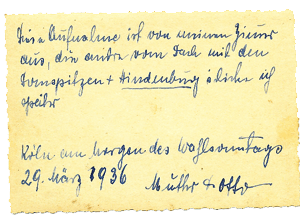 Diese Aufnahme ist von meinem Zimmer
aus, die andre vom Dach mit den
Domspitzen + Hindenburg schicke ich
später
Köln am Morgen des Wahlsonntags
29. März 1936 Mutti + Otto